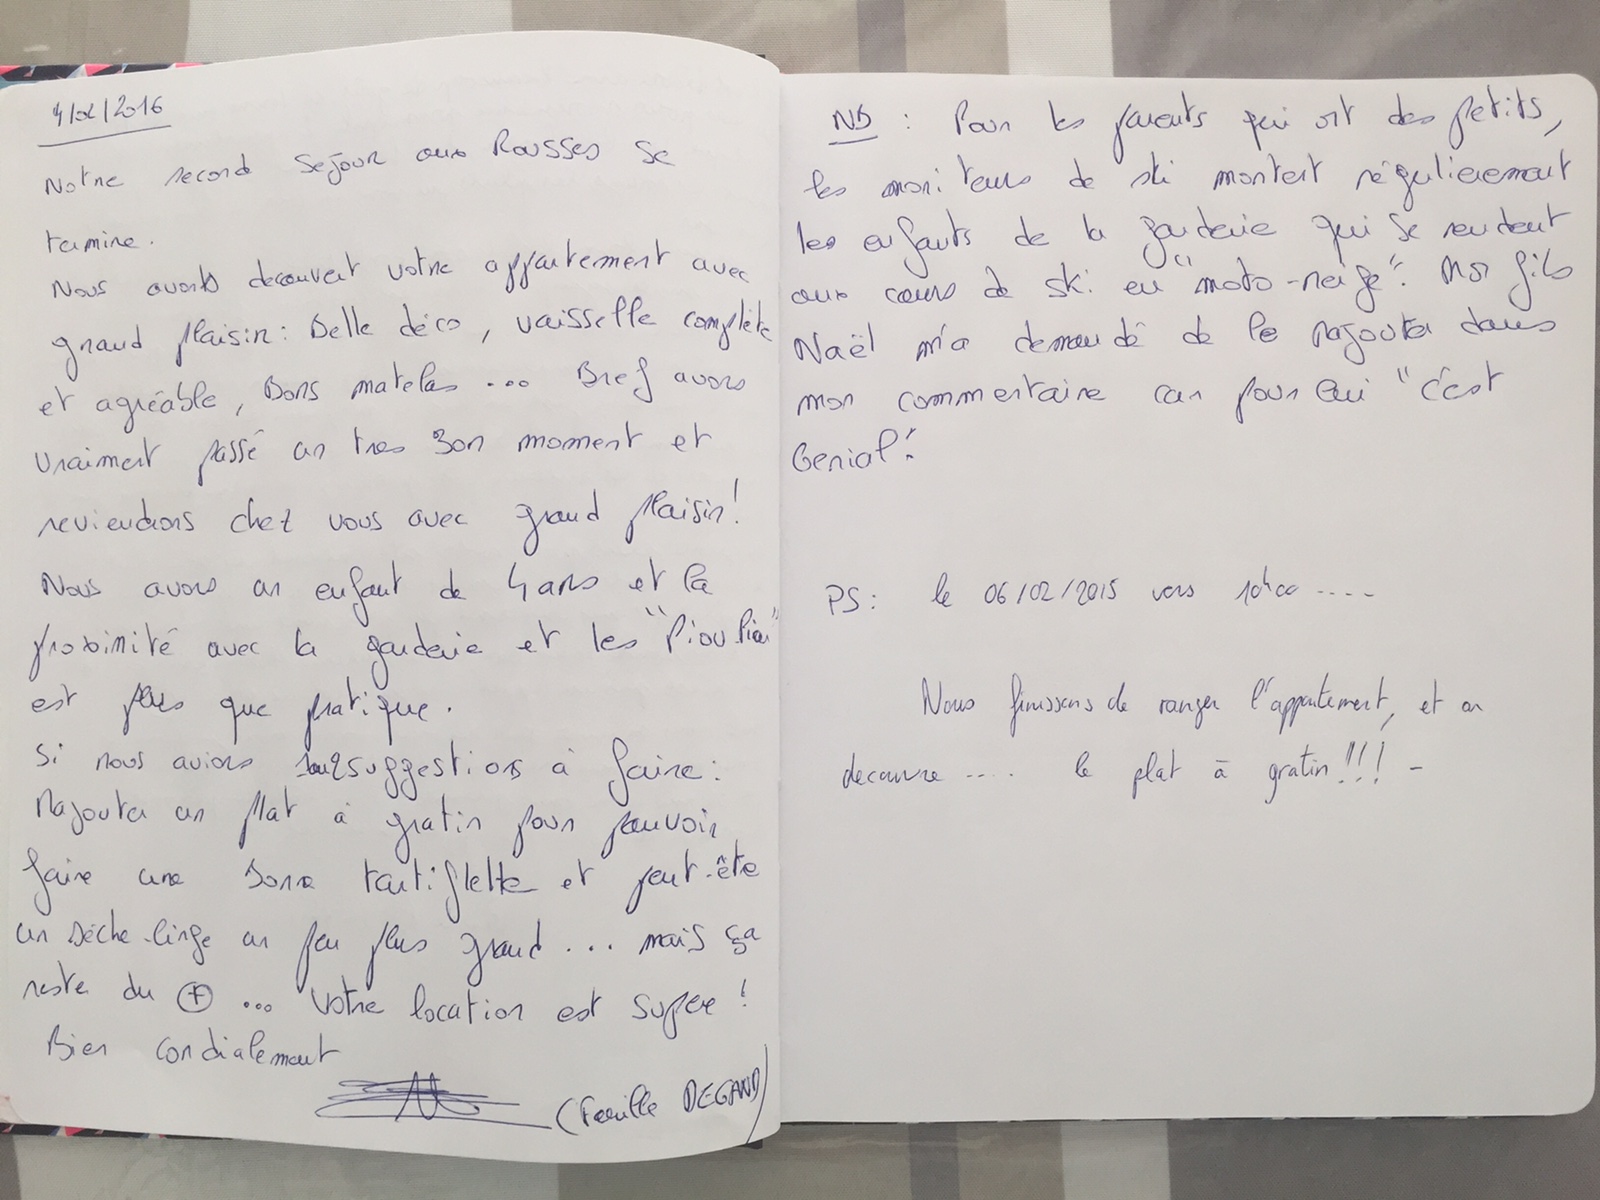 4/02/2016
Notre second sejour aux Rousses se
termine.
Nous avons decouvert votre appartement avec
grand plaisir : Belle déco, vaisselle complète
et agréable, Bons matelas ... Bref avons
vraiment passé un tres Bon moment et
reviendrons chez vous avec grand plaisir!
Nous avons un enfant de 4 ans et la
proximité avec la garderie et les "Piou Piou"
est plus que pratique.
Si nous avions suggestions à faire :
Rajouter un plat à gratin pour pouvoir
faire une bonne tartiflette et peut-être
un sèche-linge un peu plus grand ... mais ça
reste du + ... Votre location est super !
Bien cordialement
(Famille DEGAND)
NB : Pour les parents qui ont des petits,
les moniteurs de ski montent régulierement
les enfants de la garderie qui se rendent
aux cours de ski en "moto-neige". Mon fils
Naël m'a demandé de le rajouter dans
mon commentaire car pour lui "c'est
Genial"!
PS : le 06/02/2015 vers 10h00 ....
Nous finissons de ranger l'appartement, et on
decouvre .... le plat à gratin!!! -